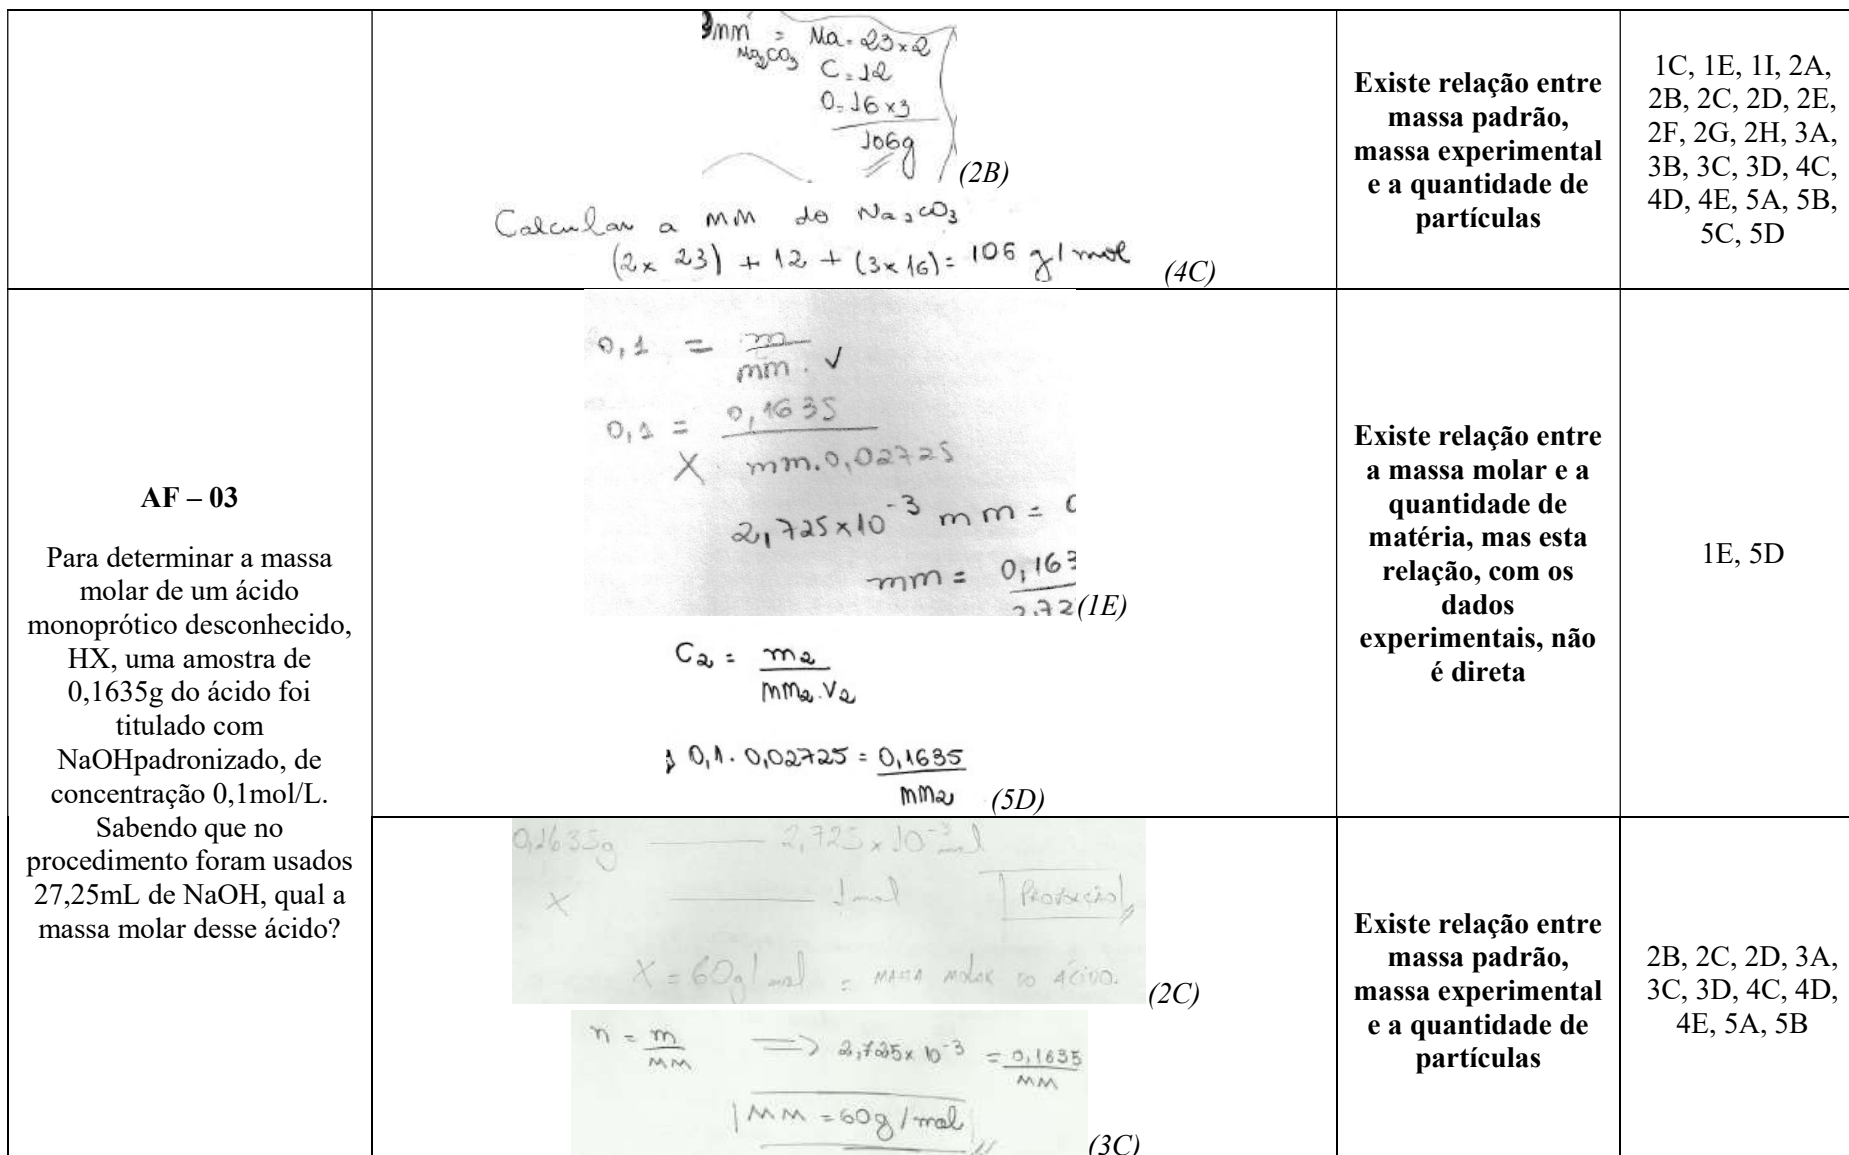 mm = Na = 23 x 2
Na2CO3 C = 12
O = 16 x 3
106g
(2B)
Calcular a MM do Na2CO3
(2 x 23) + 12 + (3 x 16) = 106 g/mol (4C)
Existe relação entre
massa padrão,
massa experimental
e a quantidade de
partículas
1C, 1E, 1I, 2A,
2B, 2C, 2D, 2E,
2F, 2G, 2H, 3A,
3B, 3C, 3D, 4C,
4D, 4E, 5A, 5B,
5C, 5D
AF – 03
Para determinar a massa
molar de um ácido
monoprótico desconhecido,
HX, uma amostra de
0,1635g do ácido foi
titulado com
NaOHpadronizado, de
concentração 0,1mol/L.
Sabendo que no
procedimento foram usados
27,25mL de NaOH, qual a
massa molar desse ácido?
0,1 = m
mm . V
0,1 = 0,1635
X mm.0,02725
2,725x10-3 mm =
mm = 0,163
2,72 (1E)
C2 = m2
mm2.V2
0,1 . 0,02725 = 0,1635
mm2 (5D)
Existe relação entre
a massa molar e a
quantidade de
matéria, mas esta
relação, com os
dados
experimentais, não
é direta
1E, 5D
0,1635g 2,725 x 10-3 mol
X 1 mol Proporção
X = 60g/mol = MASSA MOLAR DO ÁCIDO. (2C)
n = m => 2,725x 10-3 = 0,1635
MM MM
MM = 60g/mol
(3C)
Existe relação entre
massa padrão,
massa experimental
e a quantidade de
partículas
2B, 2C, 2D, 3A,
3C, 3D, 4C, 4D,
4E, 5A, 5B